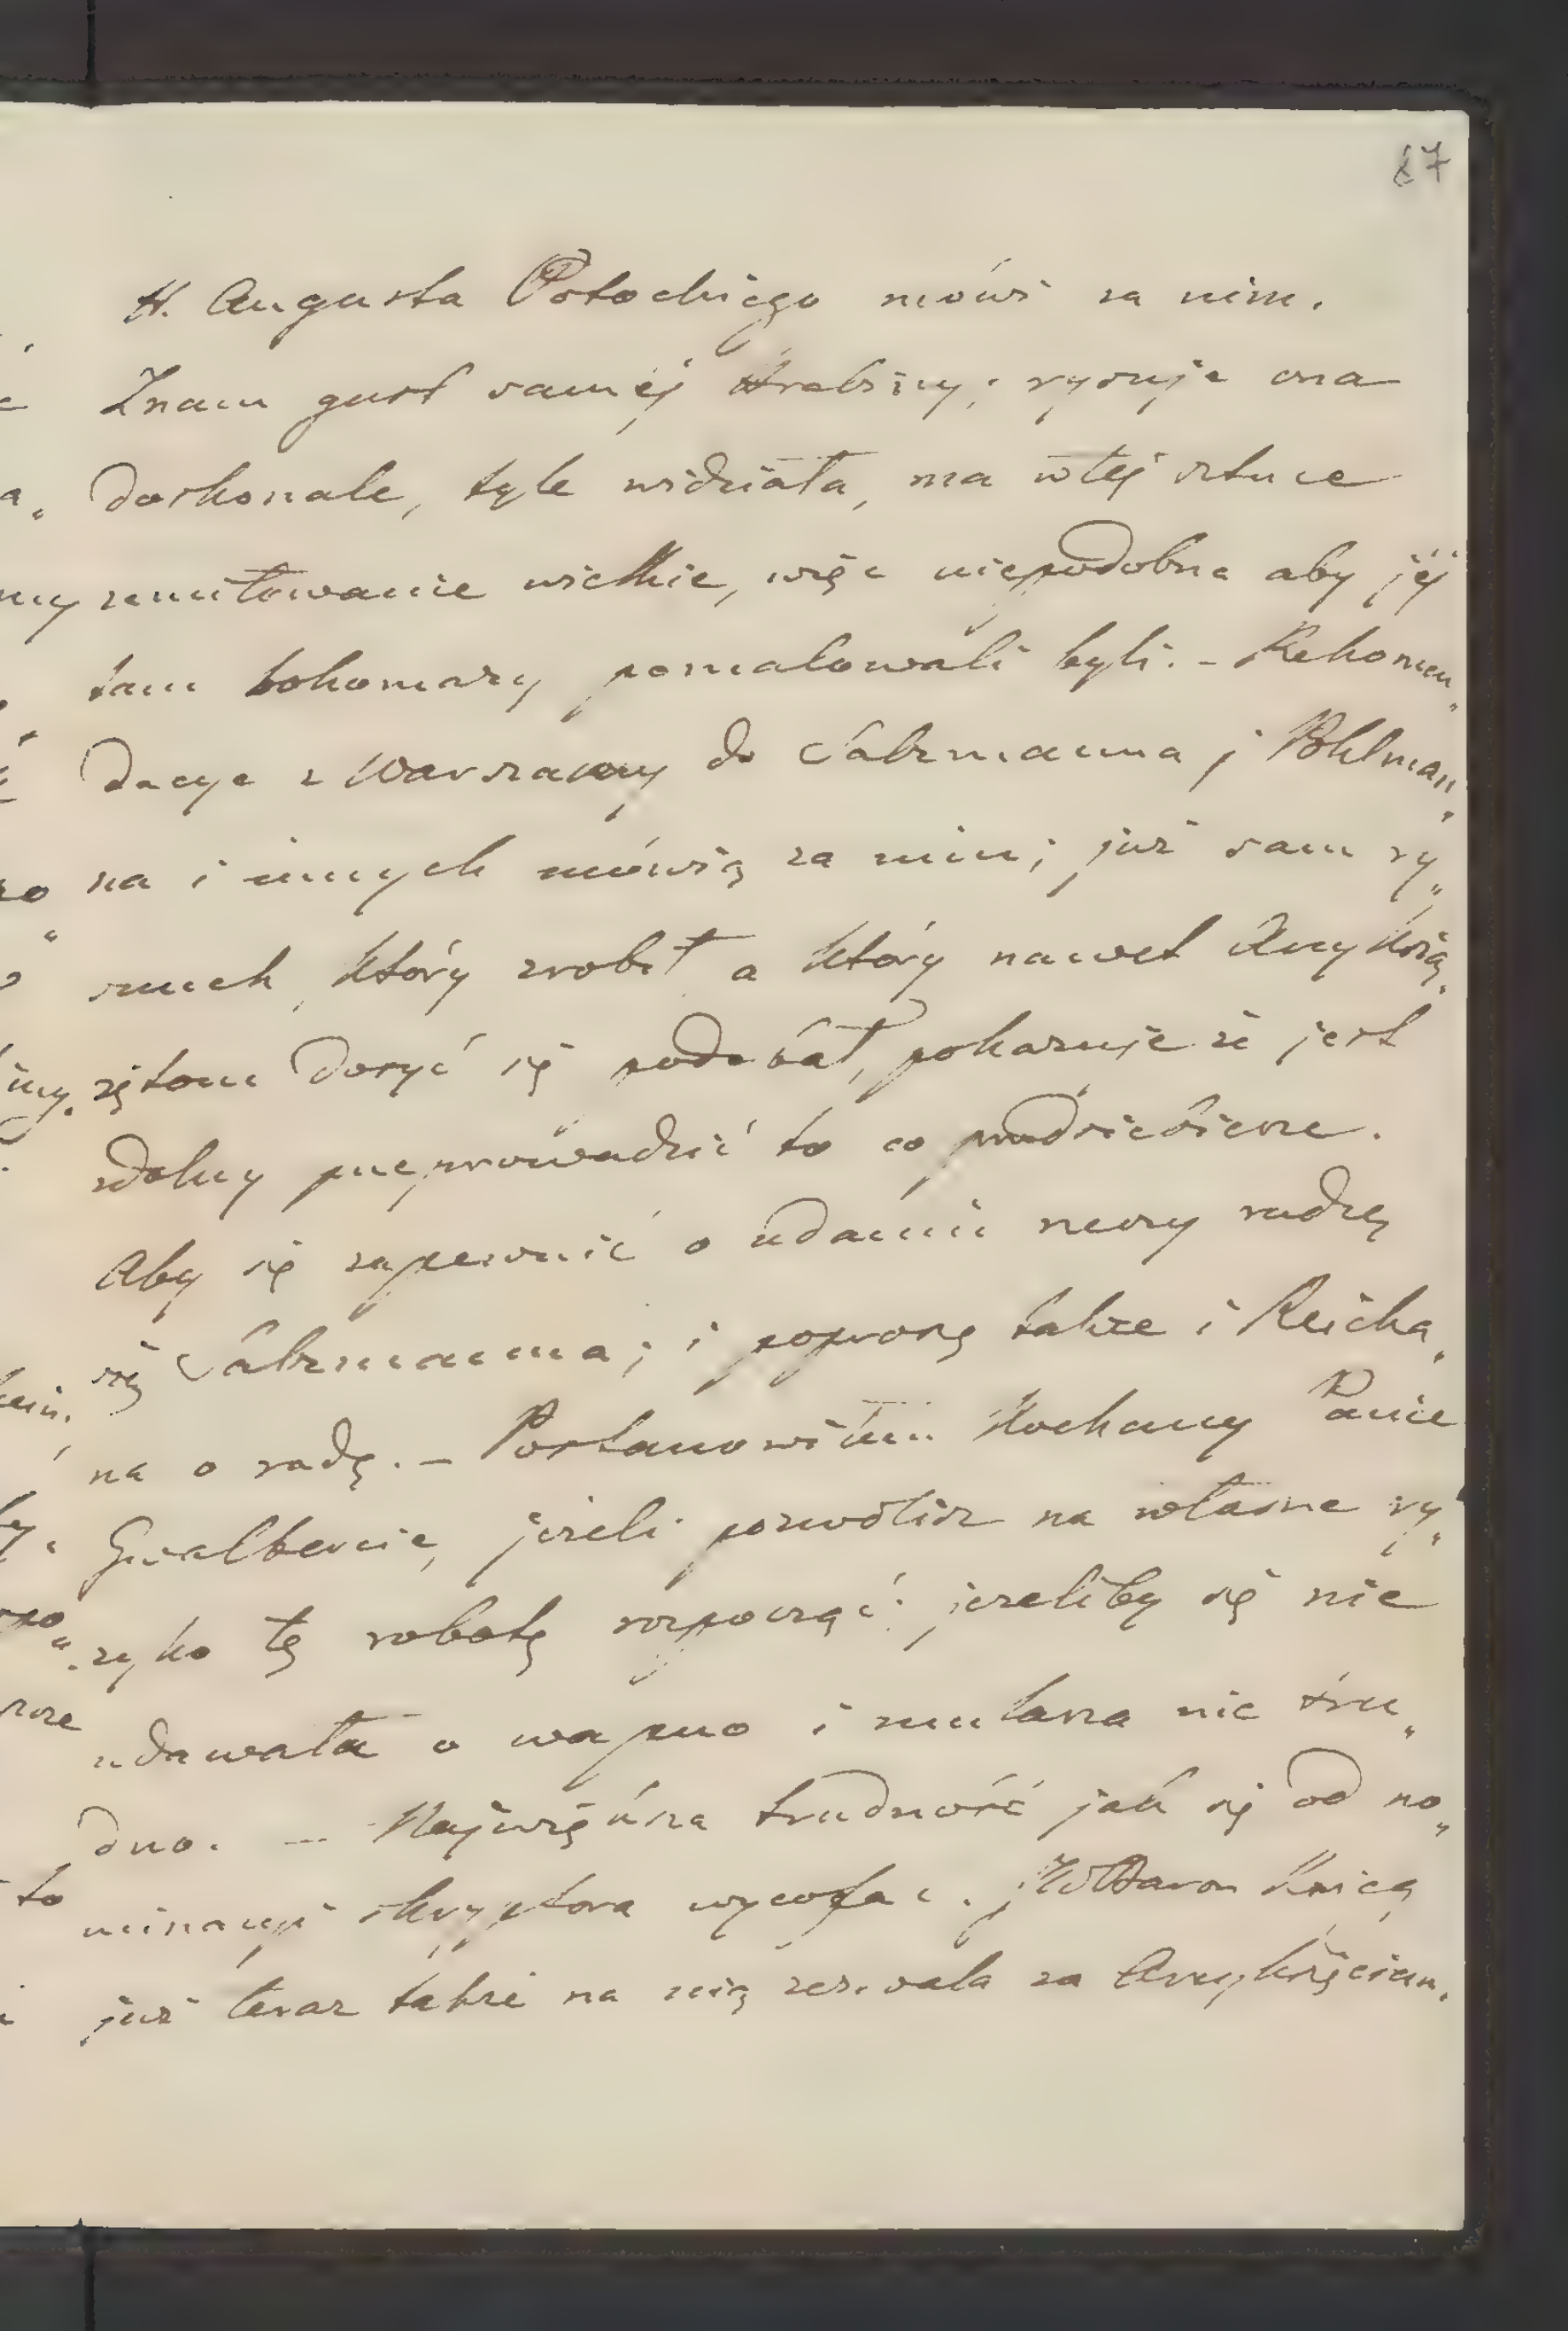 87
H. Augusta Potockiego mówi za nim.
Znam gust saméj Hrabiny; rysuje ona
doskonale, tyle widziała, ma w téj sztuce
zamiłowanie wielkie, więc niepodobna aby jéj
tam bohomazy pomalowali byli. – Rekomen„
dacye z Warszawy do Salzmanna j Pohlman„
na i innych mówią za nim; już sam ry„
sunek, który zrobił a który nawet Arcyksią„
żętom dosyć się podobał, pokazuje że jest
zdolny przeprowadzić to co przedsiebierze.
Aby się zapewnić o udaniu rzeczy radzę
się Salzmanna; i poproszę także i Reicha„
na o radę. – Postanowiłem Kochany Panie
Gwalbercie, jeżeli pozwolisz na własne ry„
zyko tę robotę rozpocząć: jeżeliby się nie
udawała o wapno i mularza nie tru„
dno. — Największa trudność jak się od no„
minacyi skryptora wycofać. JW Baron Krieg
już teraz także na nią zezwala za Arcyksięciem„